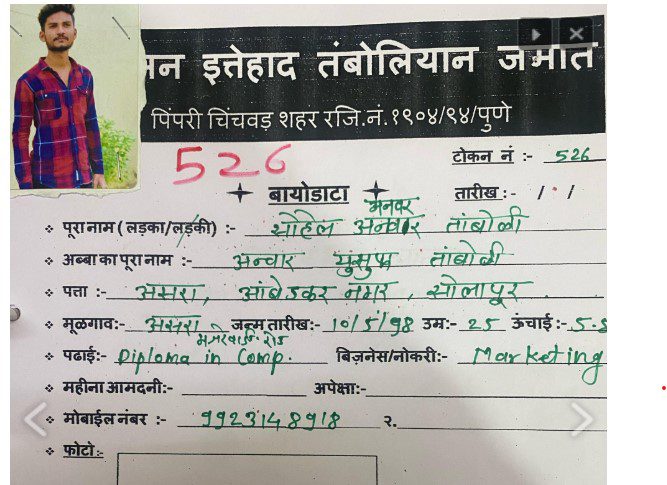 मन इत्तेहाद तंबोलियान जमात
पिंपरी चिंचवड़ शहर रजि.नं.१९०४/९४/पुणे
526
टोकन नं :- 526
बायोडाटा
तारीख :- / /
अनवर
पूरा नाम ( लड़का/लड़की) :- सोहेल अन्वार तांबोळी
अब्बा का पूरा नाम :- अन्वार युसुफ तांबोळी
पत्ता :- असरा, आंबेडकर नगर, सोलापूर.
मूळगाव:- असरा जन्म तारीख:- 10/5/98 उम:- 25 ऊंचाई :- 5.5
पढाई:- Diploma in Comp. बिज़नेस/नोकरी:- Marketing
महीना आमदनी:- अपेक्षा:-
मोबाईल नंबर :- 9923148918 २.
फोटो:-